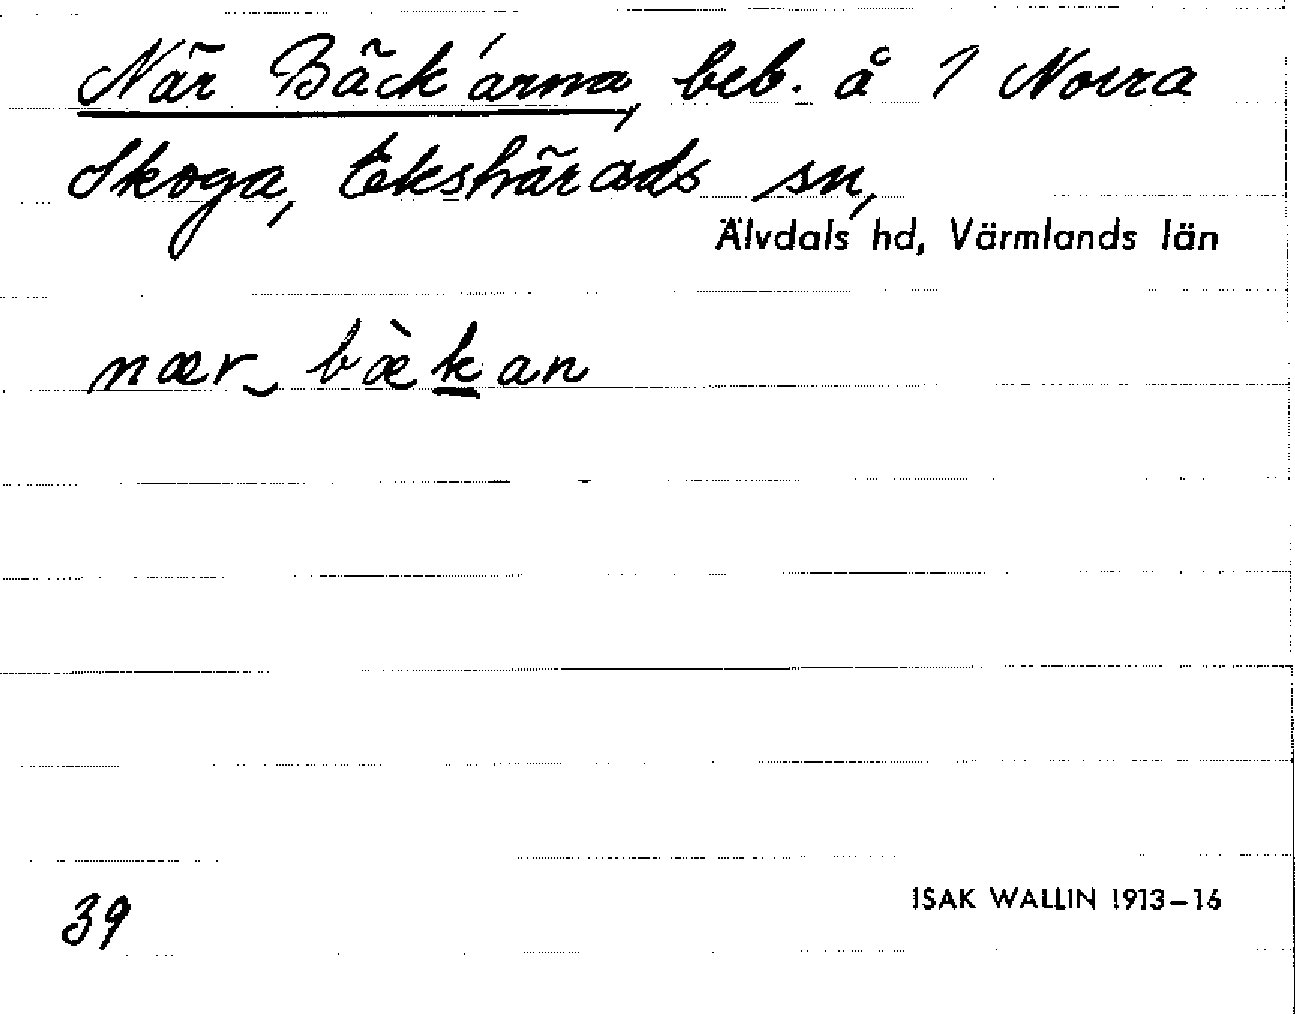 När Bäck'arna, beb. å 1 Norra
Skoga, Ekshärads sn,
Älvdals hd, Värmlands län
nær‿ bæ̀kan
39
ISAK WALLIN 1913–16